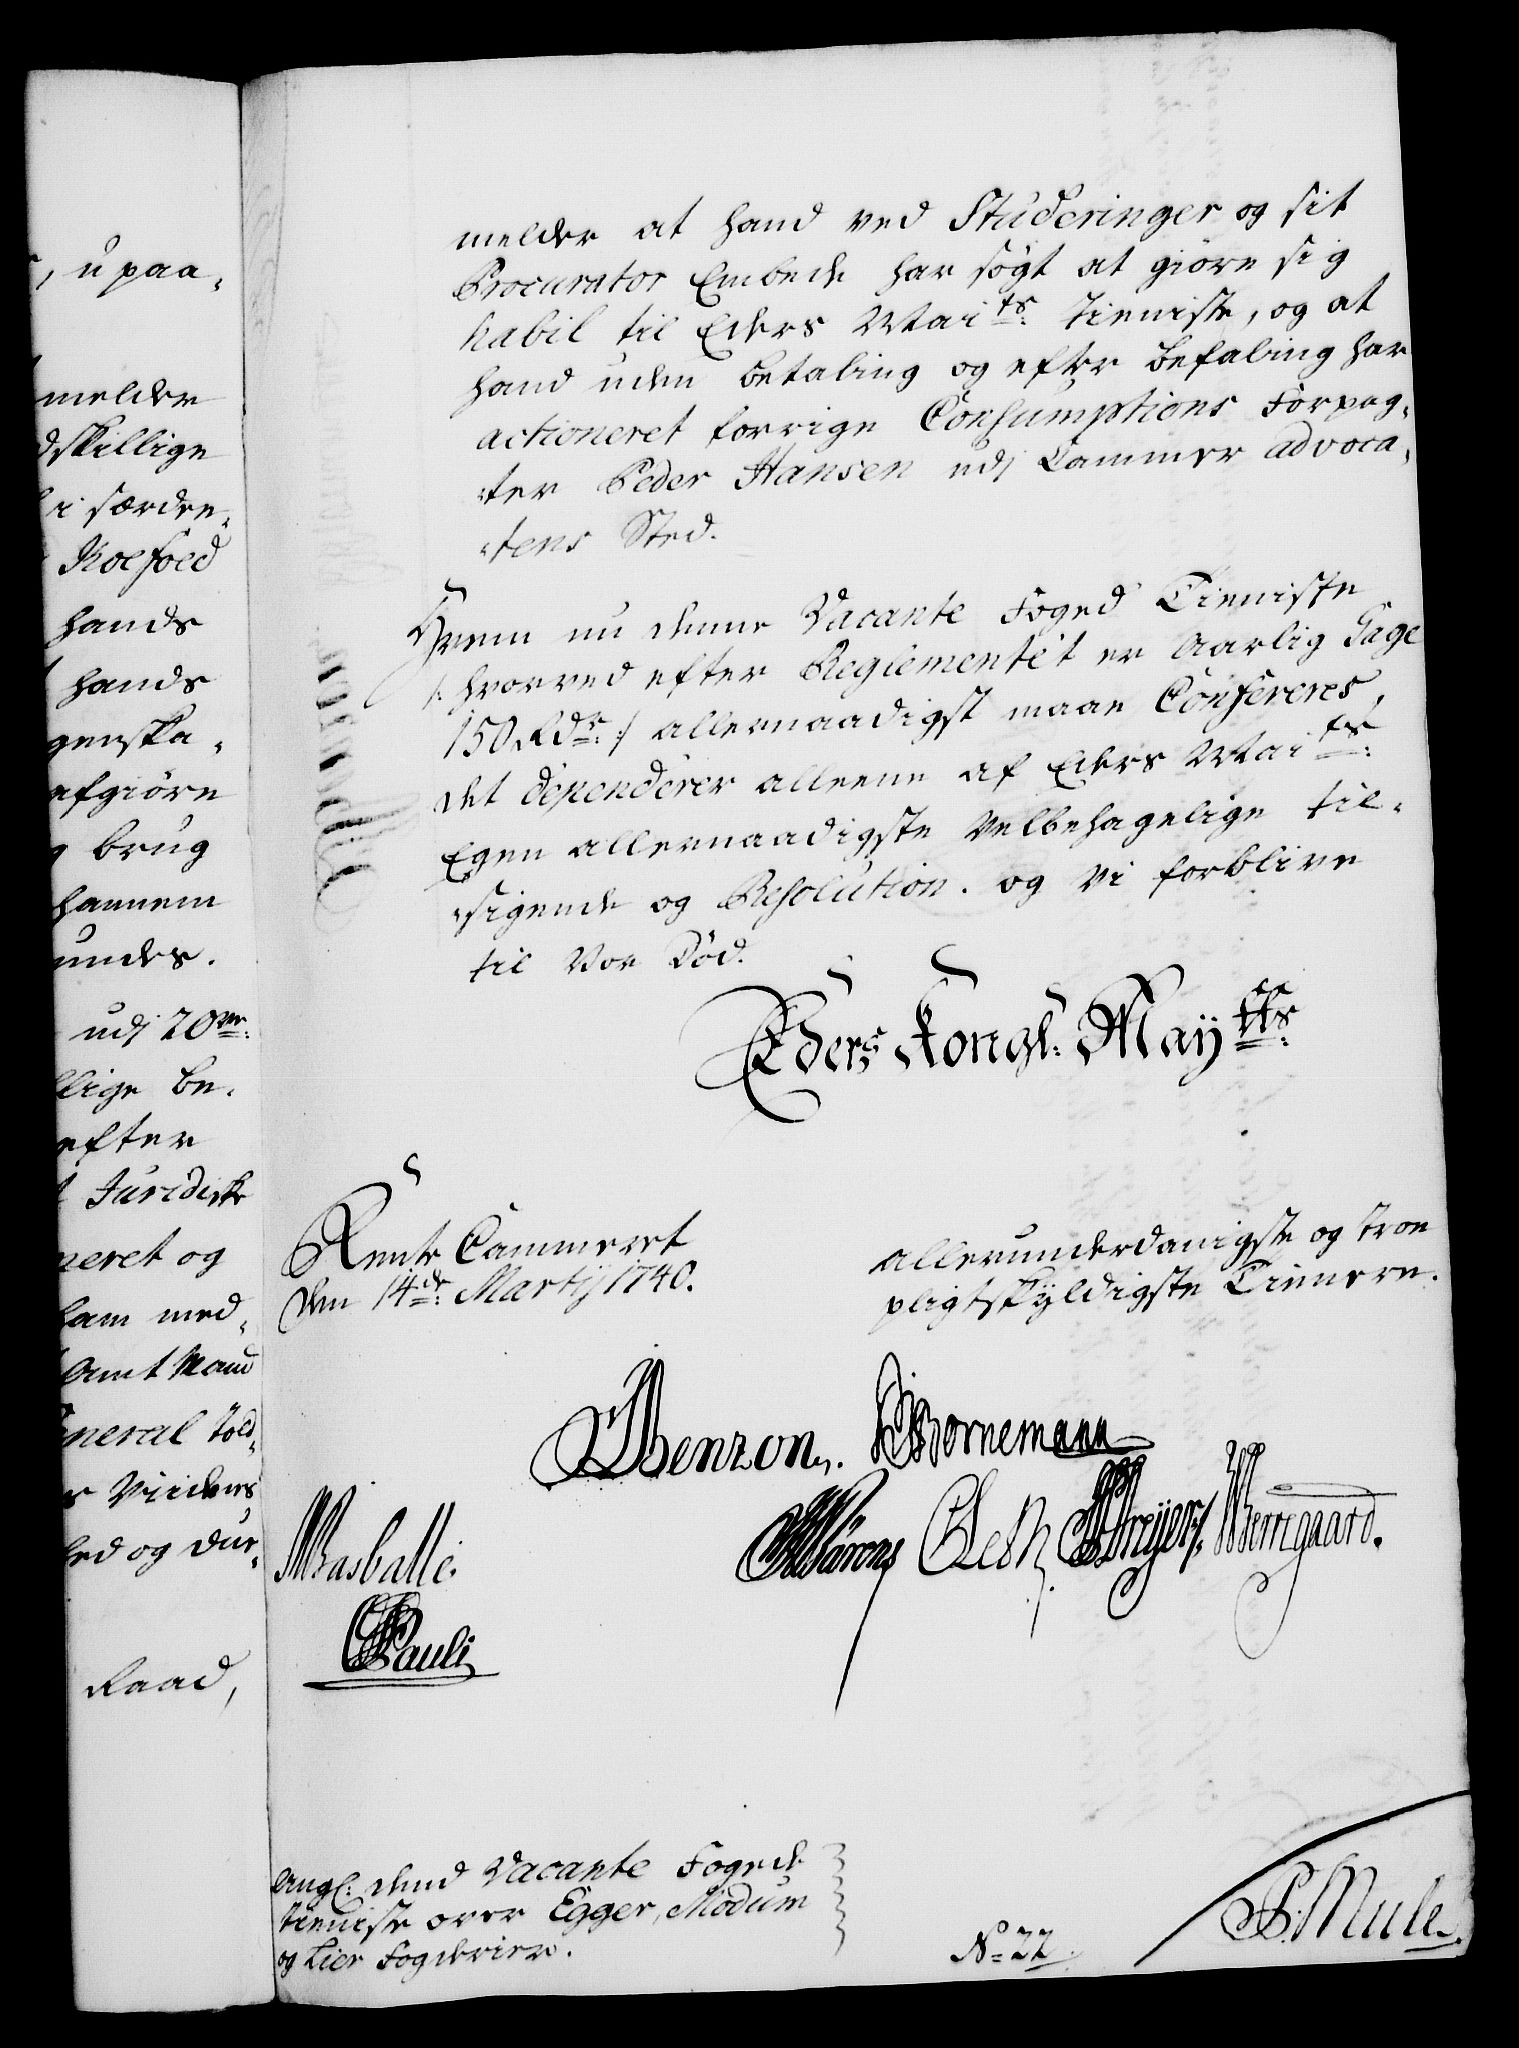 , u paa-
melder
dskillige
i særdee-
Koefoed
hands
hands
genska-
efgiøre
brug
hannem
undes.
udj 20ve:
llige be-
efter
Juridiske
neret og
ham med-
Amt Mand
General Told-
Viidens
hed og dur-
Raad,
melder at hand ved Studeringer og sit
Procurator Embede har søgt at giøre sig
habil til Eders Maits: tieniste, og at
hand uden betaling og efter befaling har
actioneret forrige Consumptions Forpag-
-ter Peder Hansen udj Cammer advoca-
-tens Sted.
Hvem nu denne Vacante Foged Tieniste
/: hvorved efter Reglementet er Aarlig Gage
150 Rdr: :/ allernaadigst maae Confereres,
det dependerer alleene af Eders Maits:
Egen allernaadigste Velbehagelige til-
-sigende og Resolution. og vi forblive
til Vor Død.
Eders Kongl: Maytts:
Rente Cammeret
den 14de: Martij 1740.
allerunderdanigste og troe
pligtskyldigste Tienere.
Benzon. Bornemann
Basballe. Wærens Leth Dreyer. Werregaard.
Pauli
Ang: dend Vacante Foged
tieniste over Egger, Modum
og Lier Fogderier.
No 22.
P. Mule.